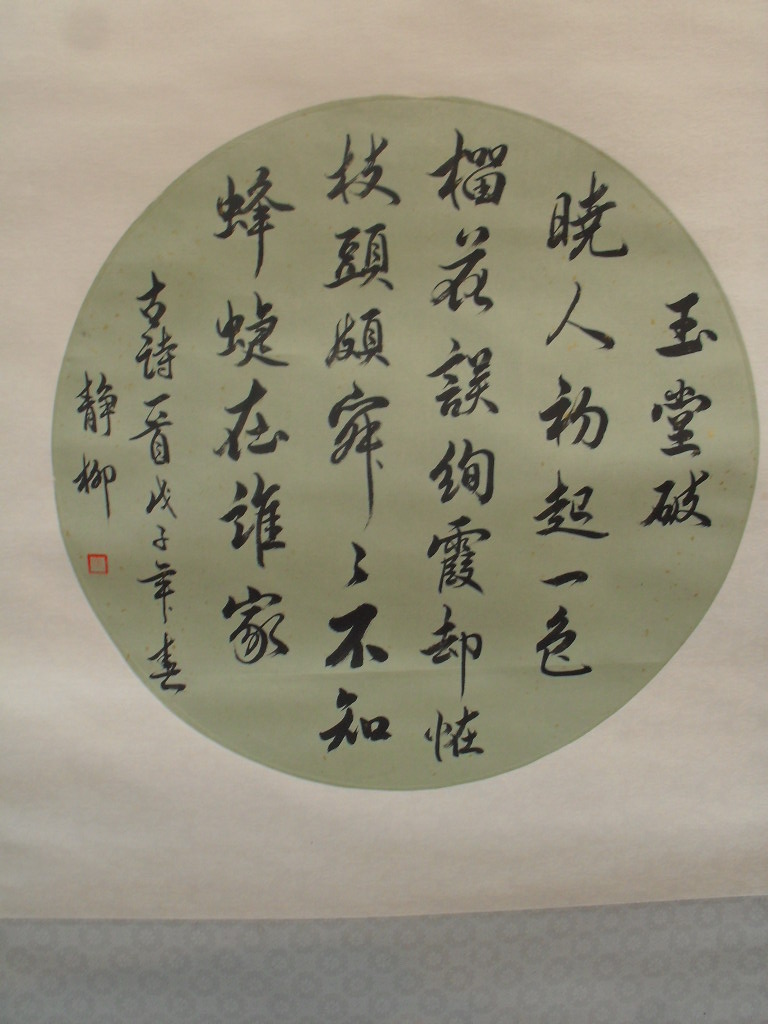 玉堂破
曉人初起一色
榴花誤絢霞却恠
枝頭頗寂〻不知
蜂蜨在誰家
古詩一首戊子年春
静柳